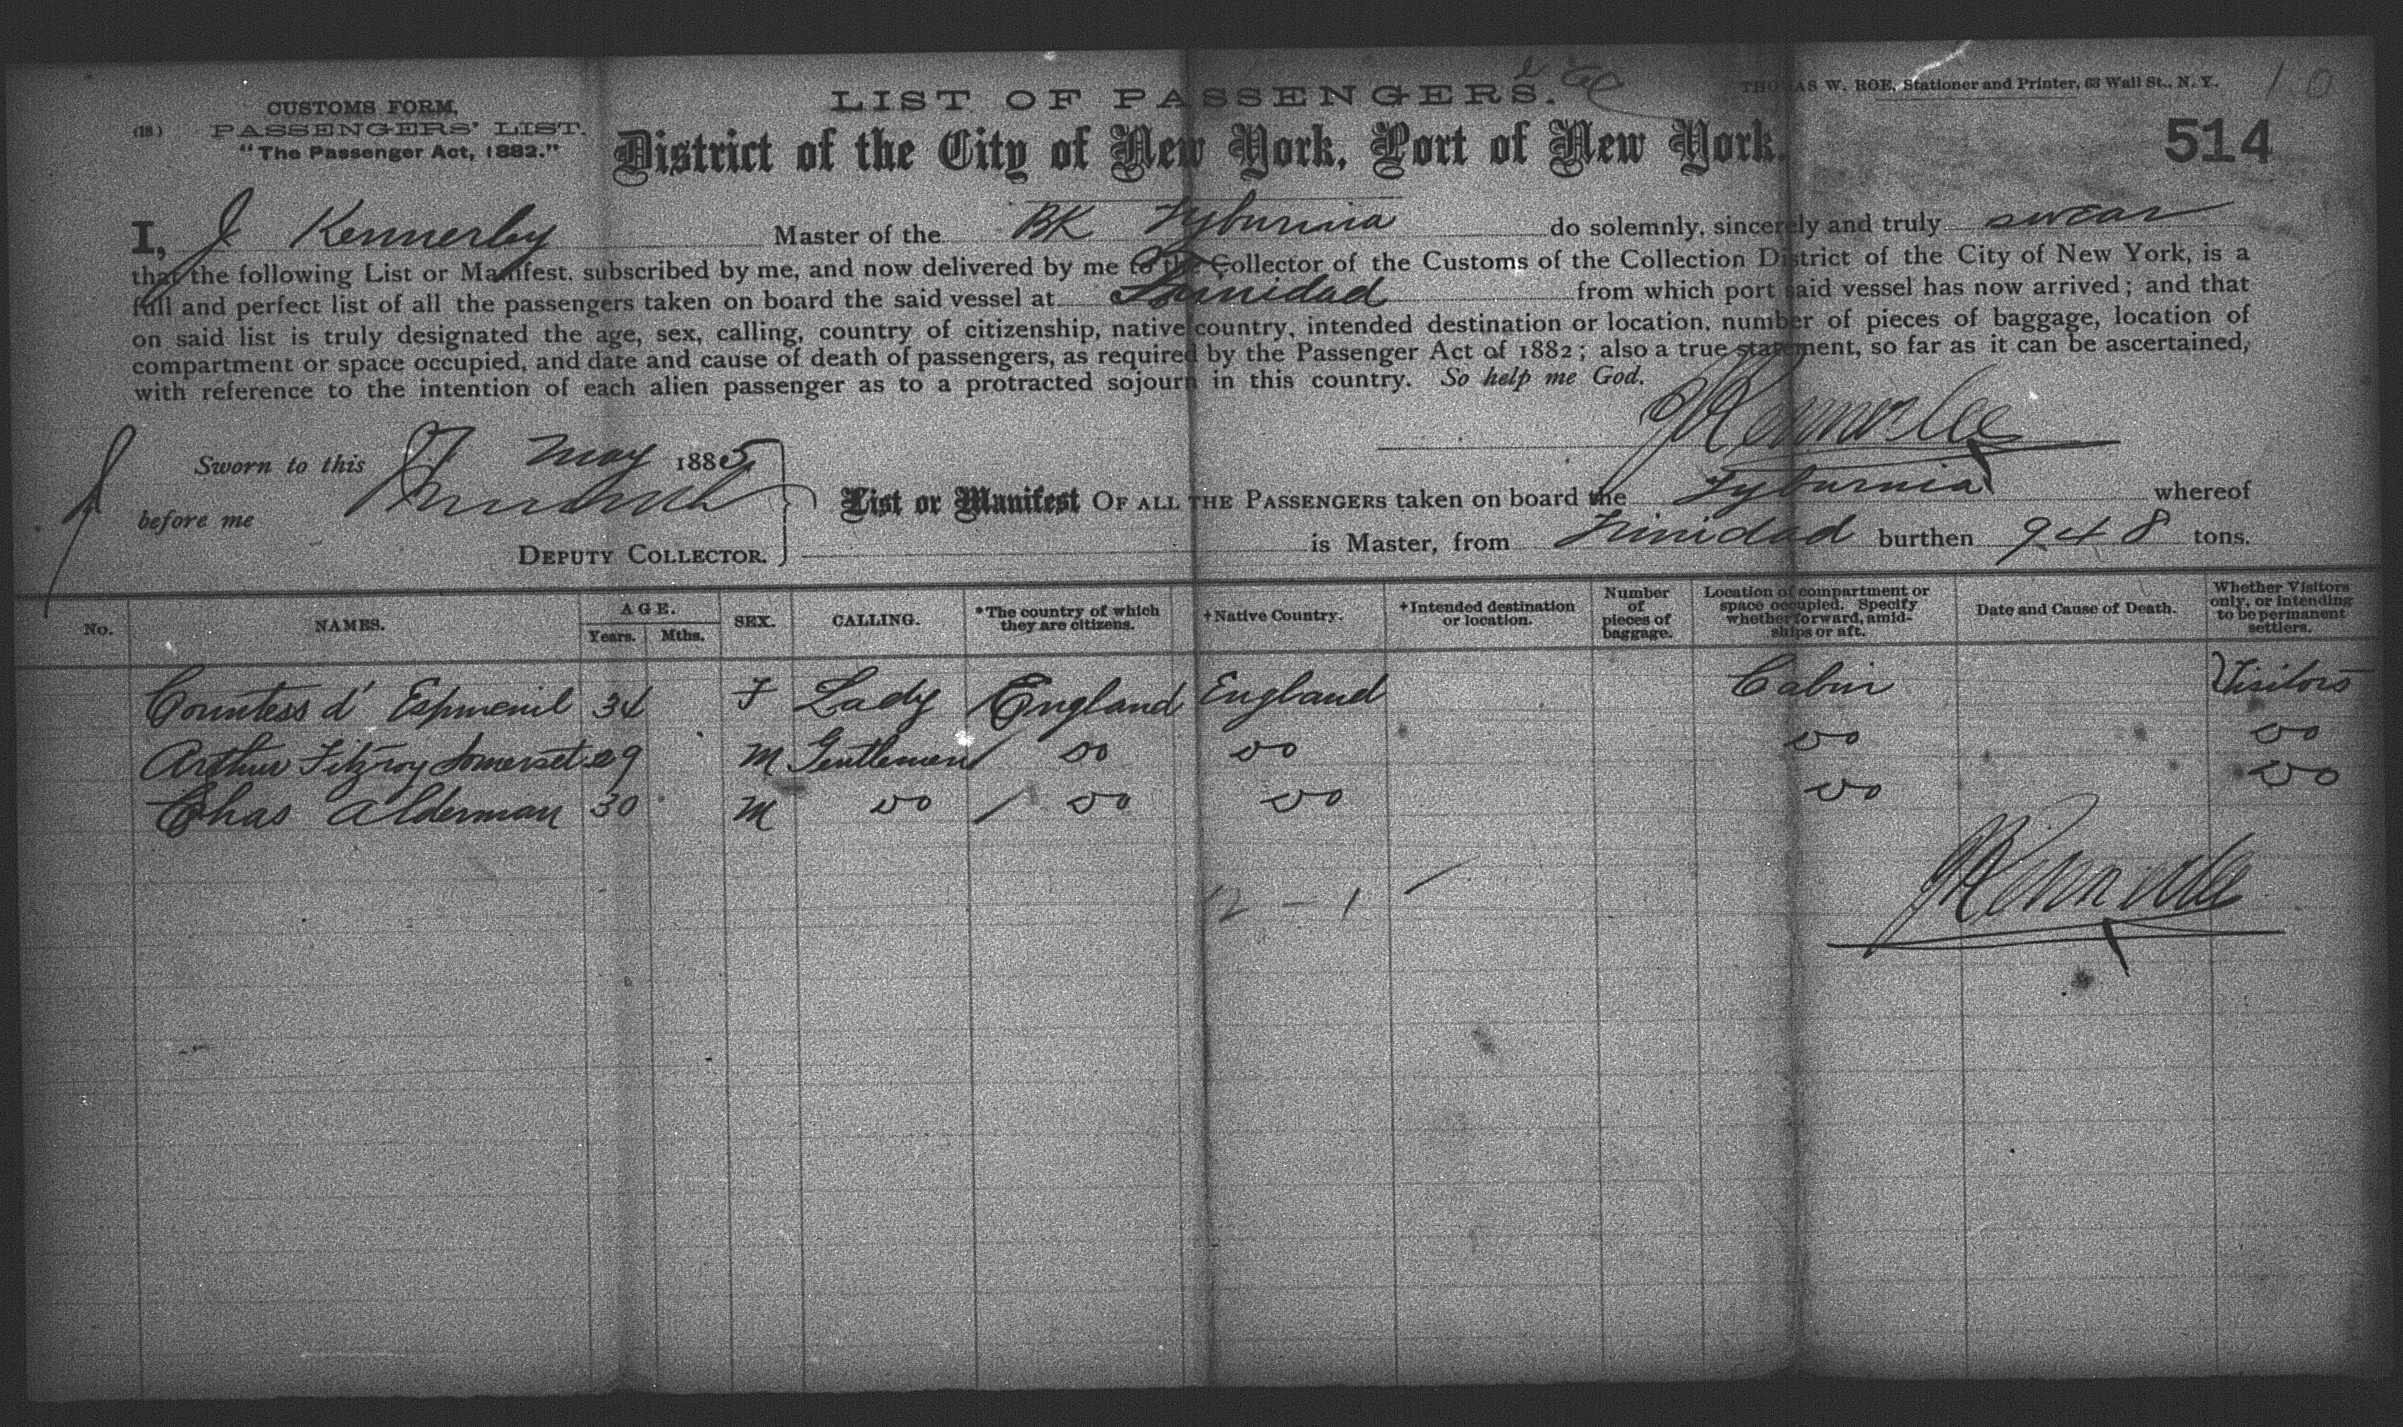 LIST OF PASSENGERS.
THOMAS W. ROE, Stationer and Printer, 63 Wall St., N. Y.
10
CUSTOMS FORM,
(18) PASSENGERS' LIST.
"The Passenger Act, 1882."
District of the City of New York, Port of New York.
514
I, J Kennerley Master of the BK Tyburnia do solemnly, sincerely and truly swear
that the following List or Manifest, subscribed by me, and now delivered by me to the Collector of the Customs of the Collection District of the City of New York, is a
full and perfect list of all the passengers taken on board the said vessel at Trinidad from which port said vessel has now arrived; and that
on said list is truly designated the age, sex, calling, country of citizenship, native country, intended destination or location, number of pieces of baggage, location of
compartment or space occupied, and date and cause of death of passengers, as required by the Passenger Act of 1882; also a true statement, so far as it can be ascertained,
with reference to the intention of each alien passenger as to a protracted sojourn in this country. So help me God.
Sworn to this May 1885
before me
DEPUTY COLLECTOR.
List or Manifest OF ALL THE PASSENGERS taken on board the Tyburnia whereof
is Master, from Trinidad burthen 948 tons.
No. NAMES. AGE. Years. Mths. SEX. CALLING. *The country of which they are citizens. +Native Country. +Intended destination or location. Number of pieces of baggage. Location of compartment or space occupied. Specify whether forward, amidships or aft. Date and Cause of Death. Whether Visitors only, or intending to be permanent settlers.
Countess d' Espmenil 34 F Lady England England Cabin Visitors
Arthur Fitzroy Somerset 29 M Gentleman do do do do
Chas Alderman 30 M do do do do do
12 - 1